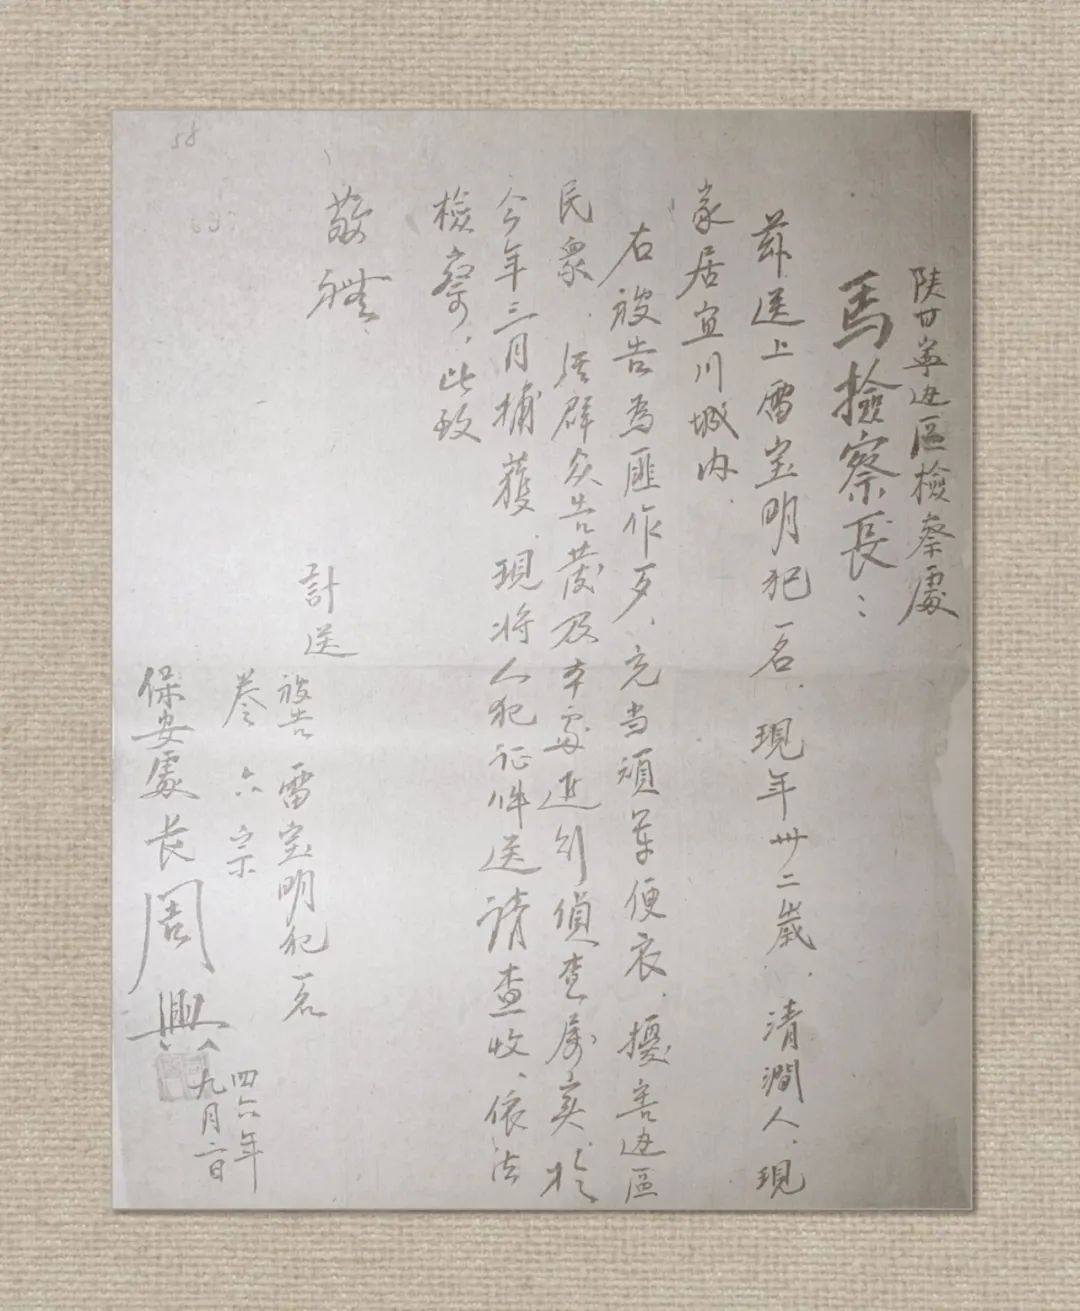 陕甘寧边區檢察處
馬檢察長：
兹送上雷宝明犯一名，現年卅二歲，清澗人，現
家居宜川城内。
右被告為匪作歹，充当頑軍便衣，擾害边區
民衆，经群众告發及本處進行偵查属实，於
今年三月捕獲，現将人犯证件送請查收，依法
檢察，此致
敬禮
計送
被告雷宝明犯一名
卷六宗
保安處長周興
四六年
九月二日
58